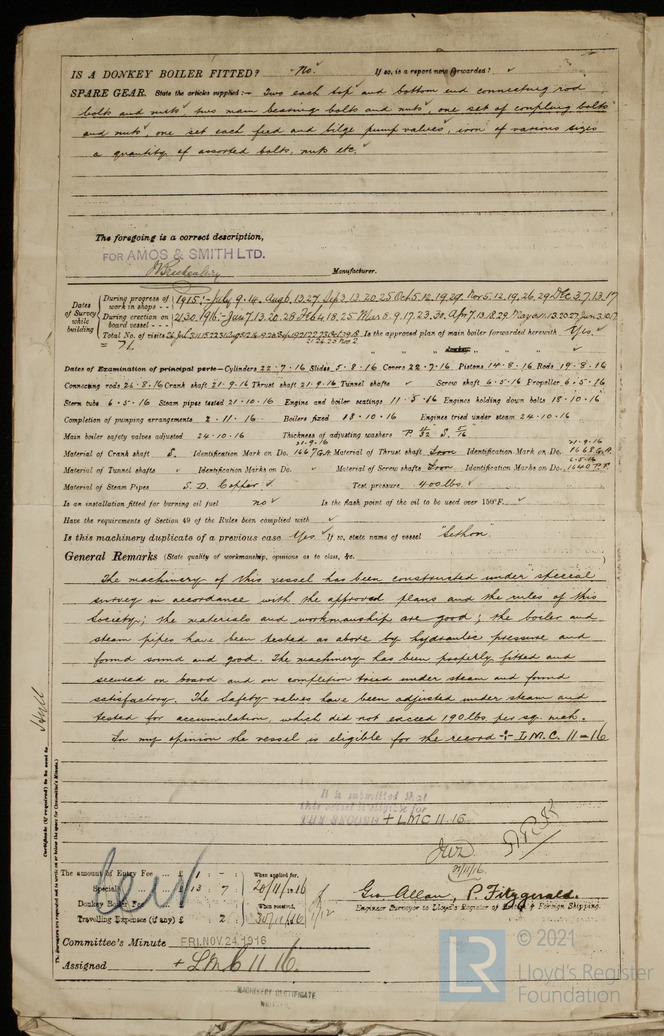 IS A DONKEY BOILER FITTED? No. If so, is a report now forwarded?
SPARE GEAR. State the articles supplied:— Two each top and bottom end connecting rod
bolts and nuts, two main bearing bolts and nuts, one set of coupling bolts
and nuts, one set each feed and bilge pump valves, iron of various sizes
a quantity of assorted bolts, nuts etc.
The foregoing is a correct description,
FOR AMOS & SMITH LTD.
Manufacturer.
Dates of Survey while building
During progress of work in shops - - 1915:- July 9. 14. Aug 6. 13. 27 Sep 3. 13. 20. 25 Oct 5. 12. 19. 29. Nov 5. 12. 19. 26. 29 Dec 3. 7. 13. 17
During erection on board vessel - - - 21. 30. 1916:- Jan 7. 13. 20. 28. Feb 4. 18. 25 Mar 3. 9. 17. 23. 30. Apr 7. 13. 18. 29. May
Total No. of visits 71. Is the approved plan of main boiler forwarded herewith Yes.
" " " donkey " " "
Dates of Examination of principal parts—Cylinders 22.7.16 Slides 5.8.16 Covers 22.7.16 Pistons 14.8.16 Rods 19.8.16
Connecting rods 26.8.16 Crank shaft 21.9.16 Thrust shaft 21.9.16 Tunnel shafts Screw shaft 6.5.16 Propeller 6.5.16
Stern tube 6.5.16 Steam pipes tested 21.10.16 Engine and boiler seatings 11.5.16 Engines holding down bolts 18.10.16
Completion of pumping arrangements 2.11.16 Boilers fixed 18.10.16 Engines tried under steam 24.10.16
Main boiler safety valves adjusted 24.10.16 Thickness of adjusting washers P. S.
Material of Crank shaft S. Identification Mark on Do. 1667 G.A. 21.9.16 Material of Thrust shaft Iron Identification Mark on Do. 1668 G.A. 21.9.16
Material of Tunnel shafts Identification Marks on Do. Material of Screw shafts Iron Identification Marks on Do. 1640 P.F. 6.5.16
Material of Steam Pipes S. D. Copper Test pressure 400 lbs.
Is an installation fitted for burning oil fuel no Is the flash point of the oil to be used over 150°F.
Have the requirements of Section 49 of the Rules been complied with
Is this machinery duplicate of a previous case Yes. If so, state name of vessel "Sethon"
General Remarks (State quality of workmanship, opinions as to class, &c.
The machinery of this vessel has been constructed under special
survey in accordance with the approved plans and the rules of this
Society; the materials and workmanship are good; the boiler and
steam pipes have been tested as above by hydraulic pressure and
found sound and good. The machinery has been properly fitted and
secured on board and on completion tried under steam and found
satisfactory. The Safety valves have been adjusted under steam and
tested for accumulation, which did not exceed 190 lbs per sq. inch.
In my opinion the vessel is eligible for the record + L.M.C. 11-16
It is submitted that
this vessel is eligible for
THE RECORD + LMC 11.16.
The amount of Entry Fee .. £ 1 : - : When applied for,
Special .. .. £ 13 : 7 : 20/11/16
Donkey Boiler Fee .. £ When received,
Travelling Expenses (if any) £ : 2 : 30/11/16
Geo. Allan, P. Fitzgerald.
Engineer Surveyor to Lloyd's Register of British & Foreign Shipping.
Committee's Minute FRI. NOV. 24 1916
Assigned + LMC 11.16.
MACHINERY CERTIFICATE
WRITTEN
Certificate (if required) to be sent to Hull
(The Surveyors are requested not to write on or below the space for Committee's Minute.)
LR © 2021
Lloyd's Register
Foundation